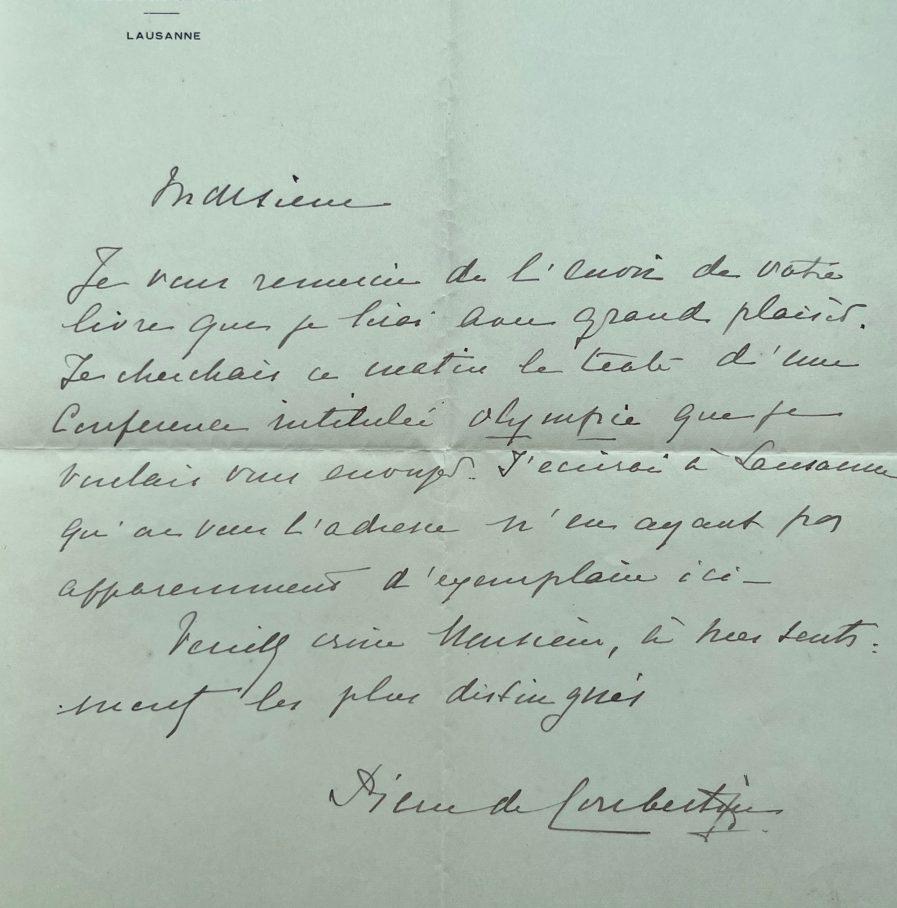 LAUSANNE
Monsieur
Je vous remercie de l'envoi de votre
livre que je lirai avec grand plaisir.
Je cherchais ce matin le texte d'une
Conference intitulée Olympie que je
voulais vous envoyer. J'écrirai à Lausanne
qu'on vous l'adresse n'en ayant pas
apparemment d'exemplaire ici -
Veuillez croire Monsieur, à mes senti-
ments les plus distingués
Pierre de Coubertin